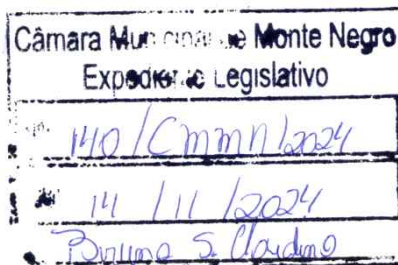 Câmara Municipal de Monte Negro
Expediente Legislativo
140/Cmmn/2024
14/11/2024
Bruna S. Claudino